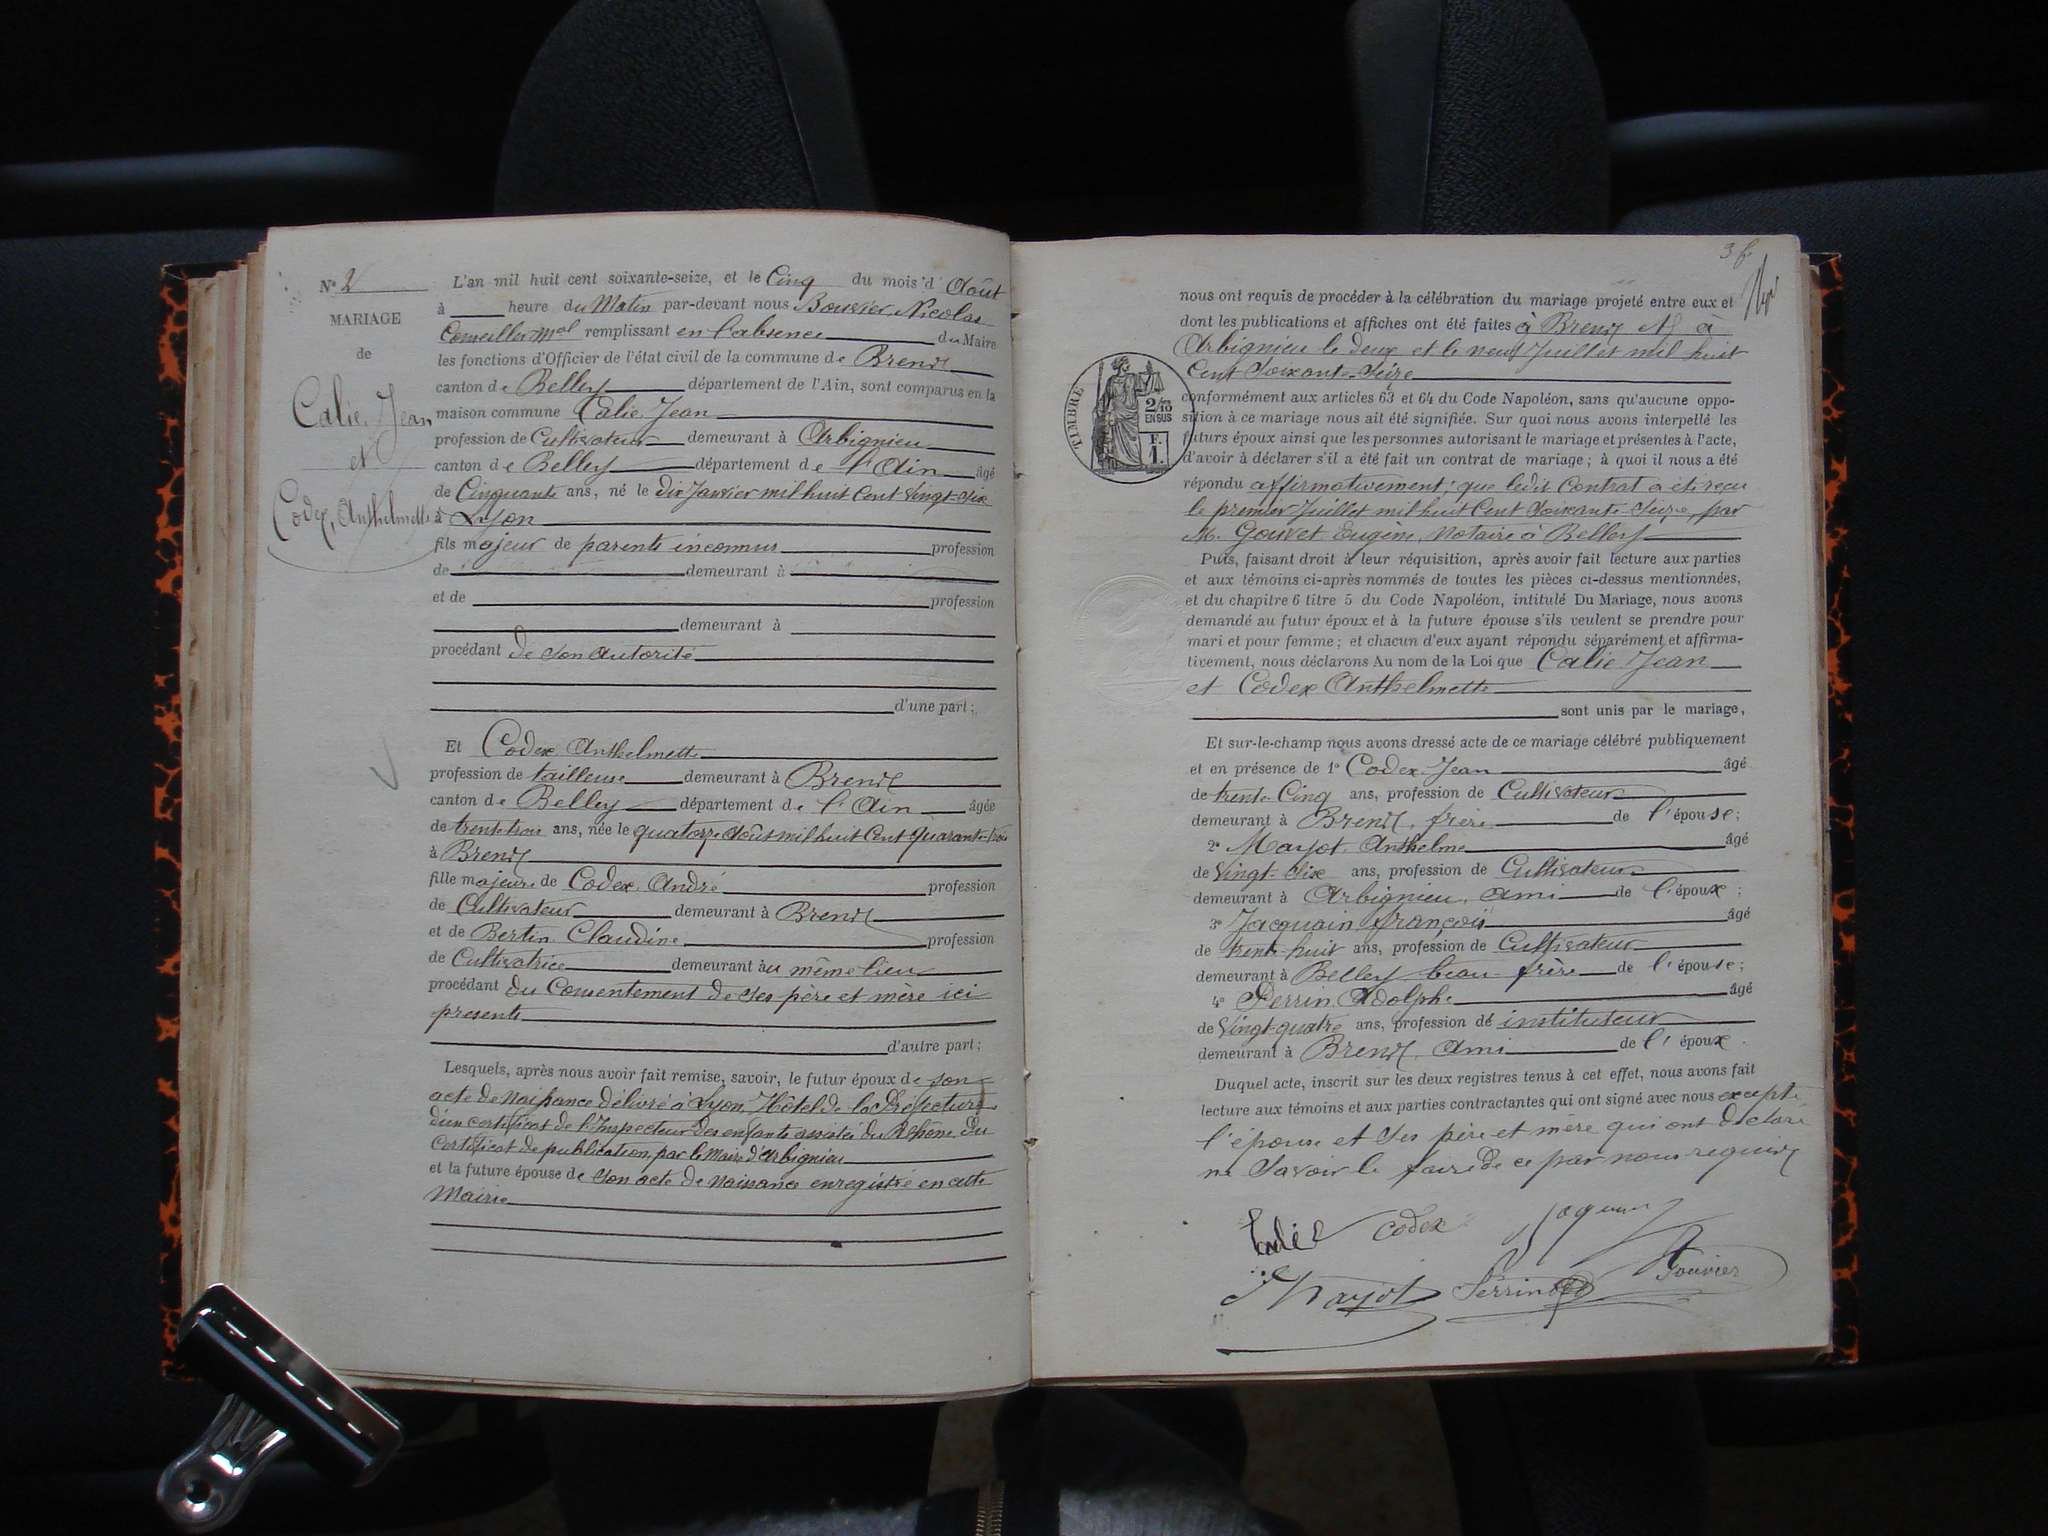 N° 2
MARIAGE
de
Calie, Jean
et
Codex, Anthelmette
L'an mil huit cent soixante-seize, et le Cinq du mois d'Août
à heure du Matin par-devant nous Bouvier Nicolas
Conseiller Mal remplissant en l'absence du Maire
les fonctions d'Officier de l'état civil de la commune de Brens
canton de Belley département de l'Ain, sont comparus en la
maison commune Calie, Jean
profession de Cultivateur demeurant à Arbignieu
canton de Belley département de l'Ain âgé
de Cinquante ans, né le dix Janvier mil huit Cent vingt-six
à Lyon
fils majeur de parents inconnus profession
de demeurant à
et de profession
demeurant à
procédant de son autorité
d'une part;
Et Codex Anthelmette
profession de tailleuse demeurant à Brens
canton de Belley département de l'Ain âgée
de trente trois ans, née le quatorze Août mil huit Cent Quarante-trois
à Brens
fille majeure de Codex, André profession
de Cultivateur demeurant à Brens
et de Bertin Claudine profession
de Cultivatrice demeurant àu même lieu
procédant du Consentement de ses père et mère ici
presents
d'autre part;
Lesquels, après nous avoir fait remise, savoir, le futur époux de son
acte de Naissance délivré à Lyon, Hôtel de la Préfecture
d'un certificat de l'Inspecteur des enfants assistés du Rhône du
Certificat de publication, par le Maire d'Arbignieu
et la future épouse de son acte de Naissance enregistré en cette
Mairie
36
nous ont requis de procéder à la célébration du mariage projeté entre eux et
dont les publications et affiches ont été faites à Brens et à
Arbignieu le deux et le neuf Juillet mil huit
Cent Soixante-Seize
conformément aux articles 63 et 64 du Code Napoléon, sans qu'aucune oppo-
sition à ce mariage nous ait été signifiée. Sur quoi nous avons interpellé les
futurs époux ainsi que les personnes autorisant le mariage et présentes à l'acte,
d'avoir à déclarer s'il a été fait un contrat de mariage; à quoi il nous a été
répondu affirmativement; que ledit Contrat a été reçu
le premier Juillet mil huit Cent Soixante Seize, par
M. Gouvet Eugène, Notaire à Belley
TIMBRE
2/10
EN SUS
F.
1.
Puis, faisant droit à leur réquisition, après avoir fait lecture aux parties
et aux témoins ci-après nommés de toutes les pièces ci-dessus mentionnées,
et du chapitre 6 titre 5 du Code Napoléon, intitulé Du Mariage, nous avons
demandé au futur époux et à la future épouse s'ils veulent se prendre pour
mari et pour femme; et chacun d'eux ayant répondu séparément et affirma-
tivement, nous déclarons Au nom de la Loi que Calie Jean
et Codex Anthelmette
sont unis par le mariage,
Et sur-le-champ nous avons dressé acte de ce mariage célébré publiquement
et en présence de 1° Codex Jean âgé
de trente-Cinq ans, profession de Cultivateur
demeurant à Brens, frère de l'épouse;
2° Mayot Anthelme âgé
de Vingt-Six ans, profession de Cultivateur
demeurant à Arbignieu, ami de l'époux;
3° Jacquain François âgé
de trente-huit ans, profession de Cultivateur
demeurant à Belley beau-frère de l'épouse;
4° Perrin Adolphe âgé
de Vingt-quatre ans, profession de instituteur
demeurant à Brens, ami de l'époux.
Duquel acte, inscrit sur les deux registres tenus à cet effet, nous avons fait
lecture aux témoins et aux parties contractantes qui ont signé avec nous excepté
l'épouse et ses père et mère qui ont déclaré
ne Savoir le faire de ce par nous requis
Codex
Mayot Perrin Bouvier